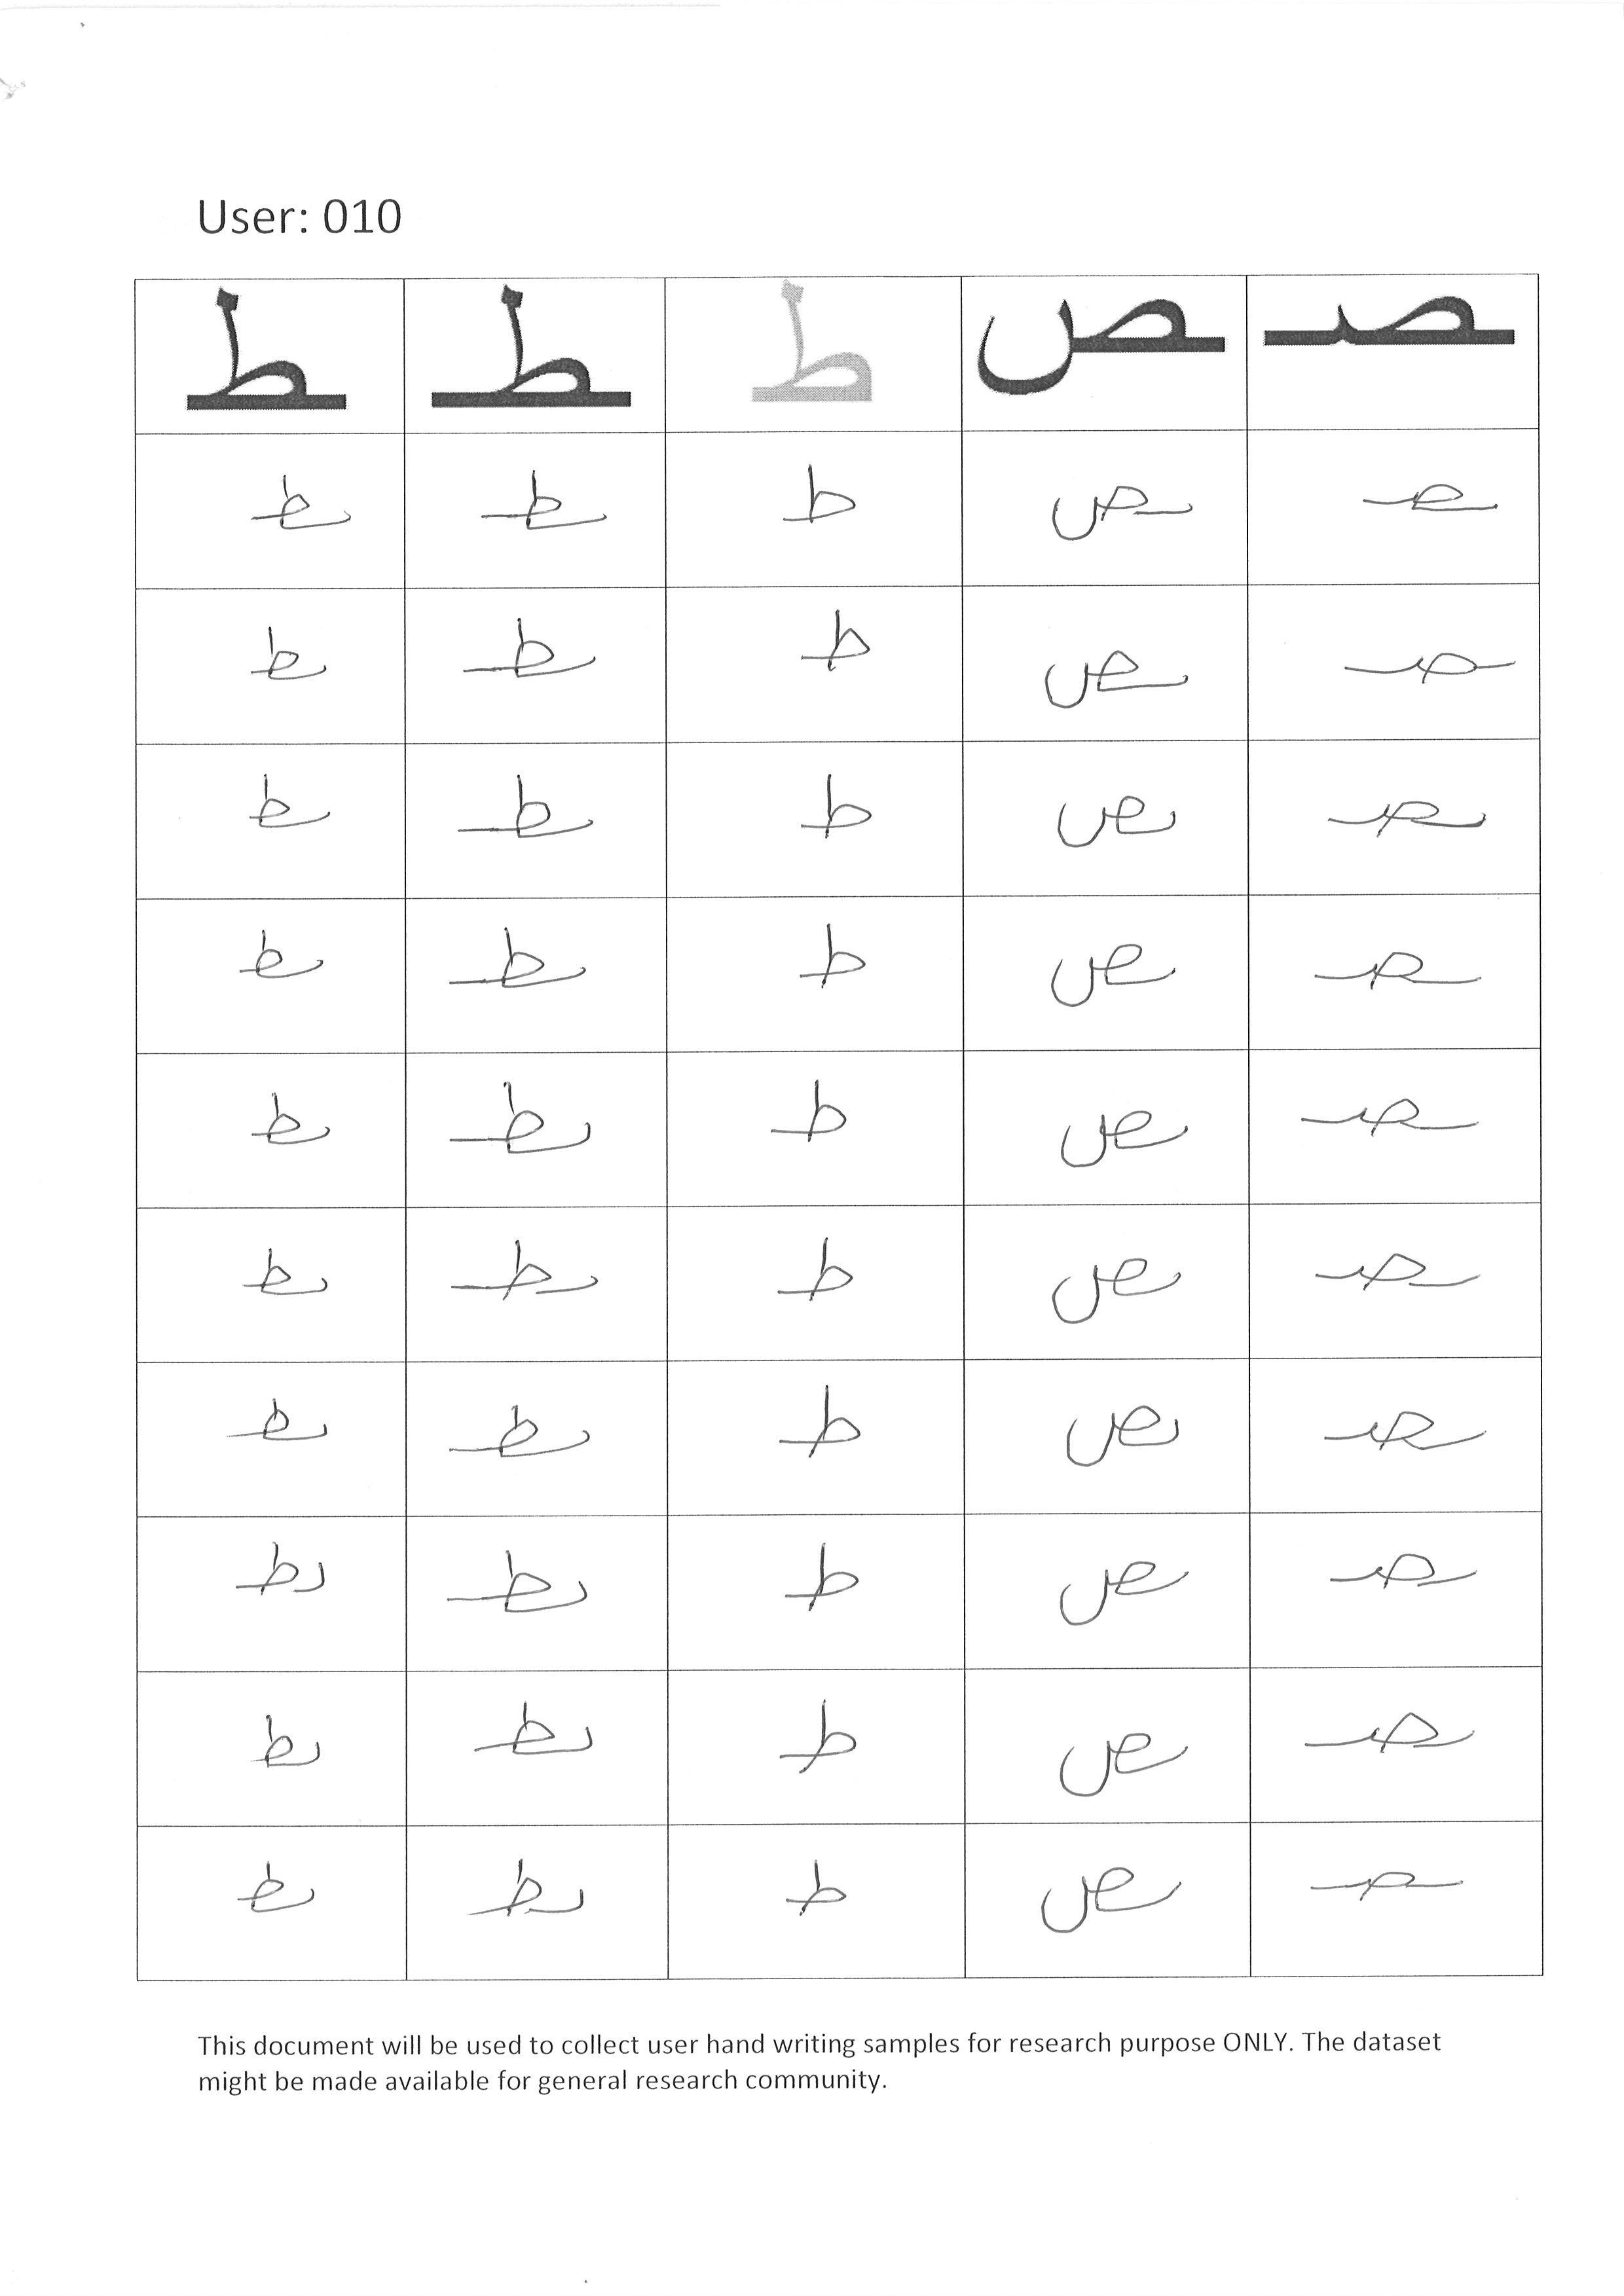 User: 010
ـصـ ـص ط ـطـ ـط
ـصـ ـص ط ـطـ ـط
ـصـ ـص ط ـطـ ـط
ـصـ ـص ط ـطـ ـط
ـصـ ـص ط ـطـ ـط
ـصـ ـص ط ـطـ ـط
ـصـ ـص ط ـطـ ـط
ـصـ ـص ط ـطـ ـط
ـصـ ـص ط ـطـ ـط
ـصـ ـص ط ـطـ ـط
ـصـ ـص ط ـطـ ـط
This document will be used to collect user hand writing samples for research purpose ONLY. The dataset
might be made available for general research community.